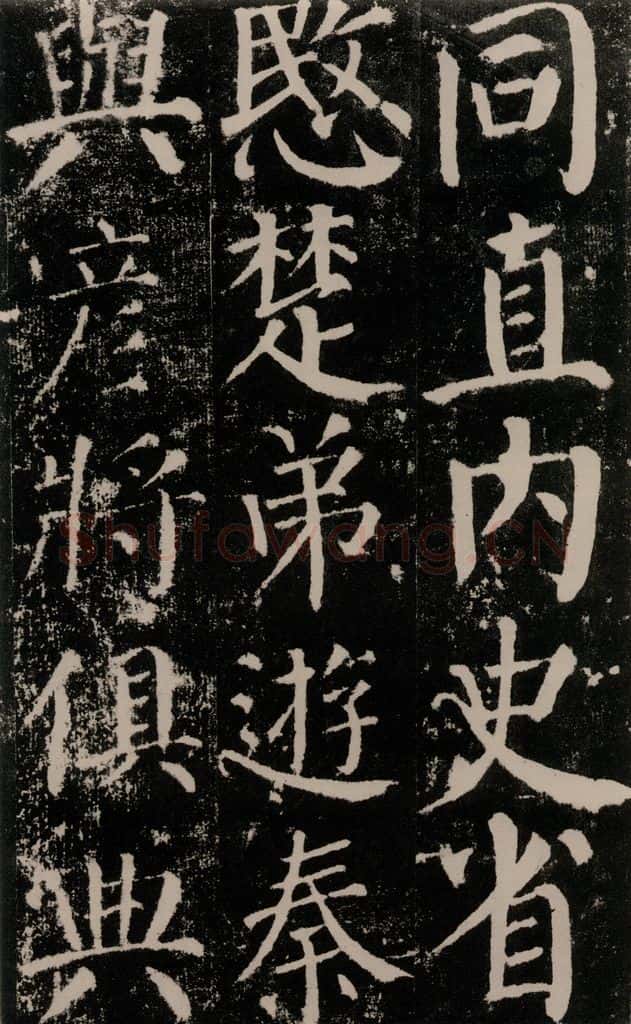 同直内史省
愍楚弟遊秦
與彦將俱典
Shufawang.CN